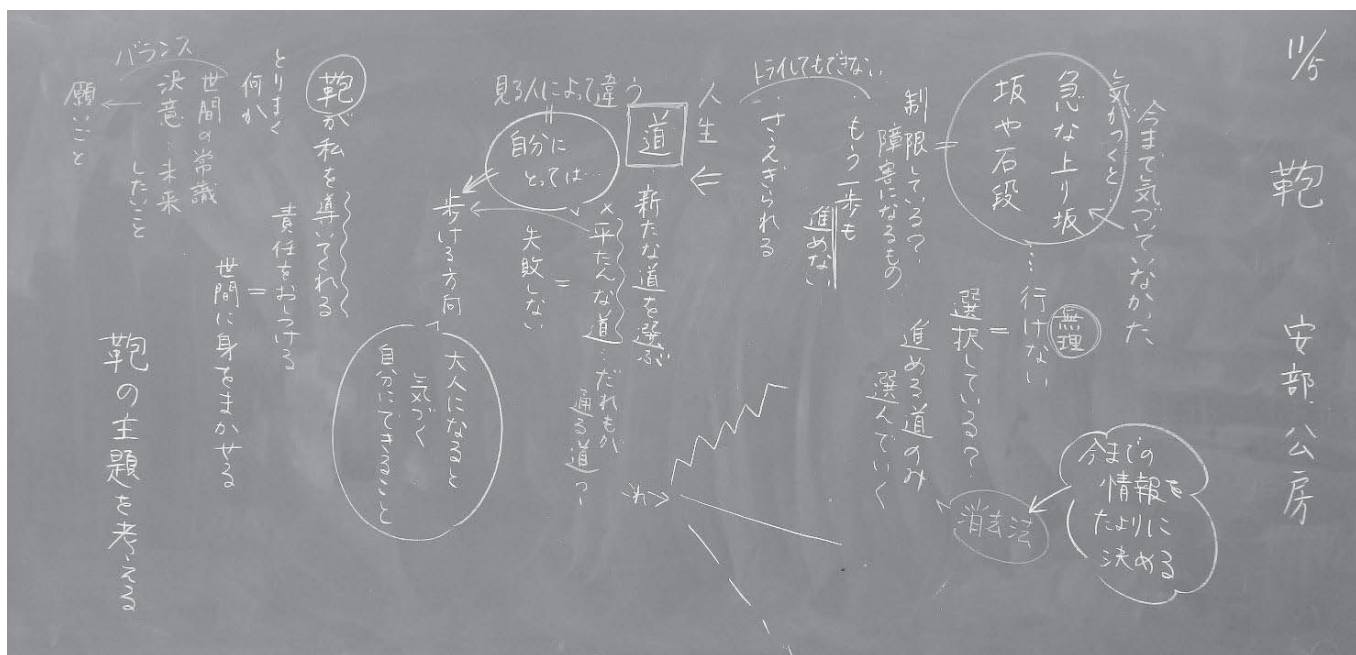 11/5
鞄　安部公房
今まで気づいていなかった
気がつくと…
急な上り坂
坂や石段
…行けない
無理
=
選択している?
進める道のみ
選んでいく
消去法
今までの
情報を
たよりに
決める
=
制限している?
障害になるもの
トライしてもできない
・もう一歩も
進めない
・さえぎられる
人生
⇐
道
新たな道を選ぶ
見る人によって違う
=
自分に
とっては…
×平たんな道…だれもが
通る道?
=
失敗しない
歩ける方向
大人になると
気づく
自分にできること
鞄が私を導いてくれる
責任をおしつける
=
世間に身をまかせる
とりまく
何か
バランス
世間の常識
決意・未来
したいこと
願いごと
鞄の主題を考える